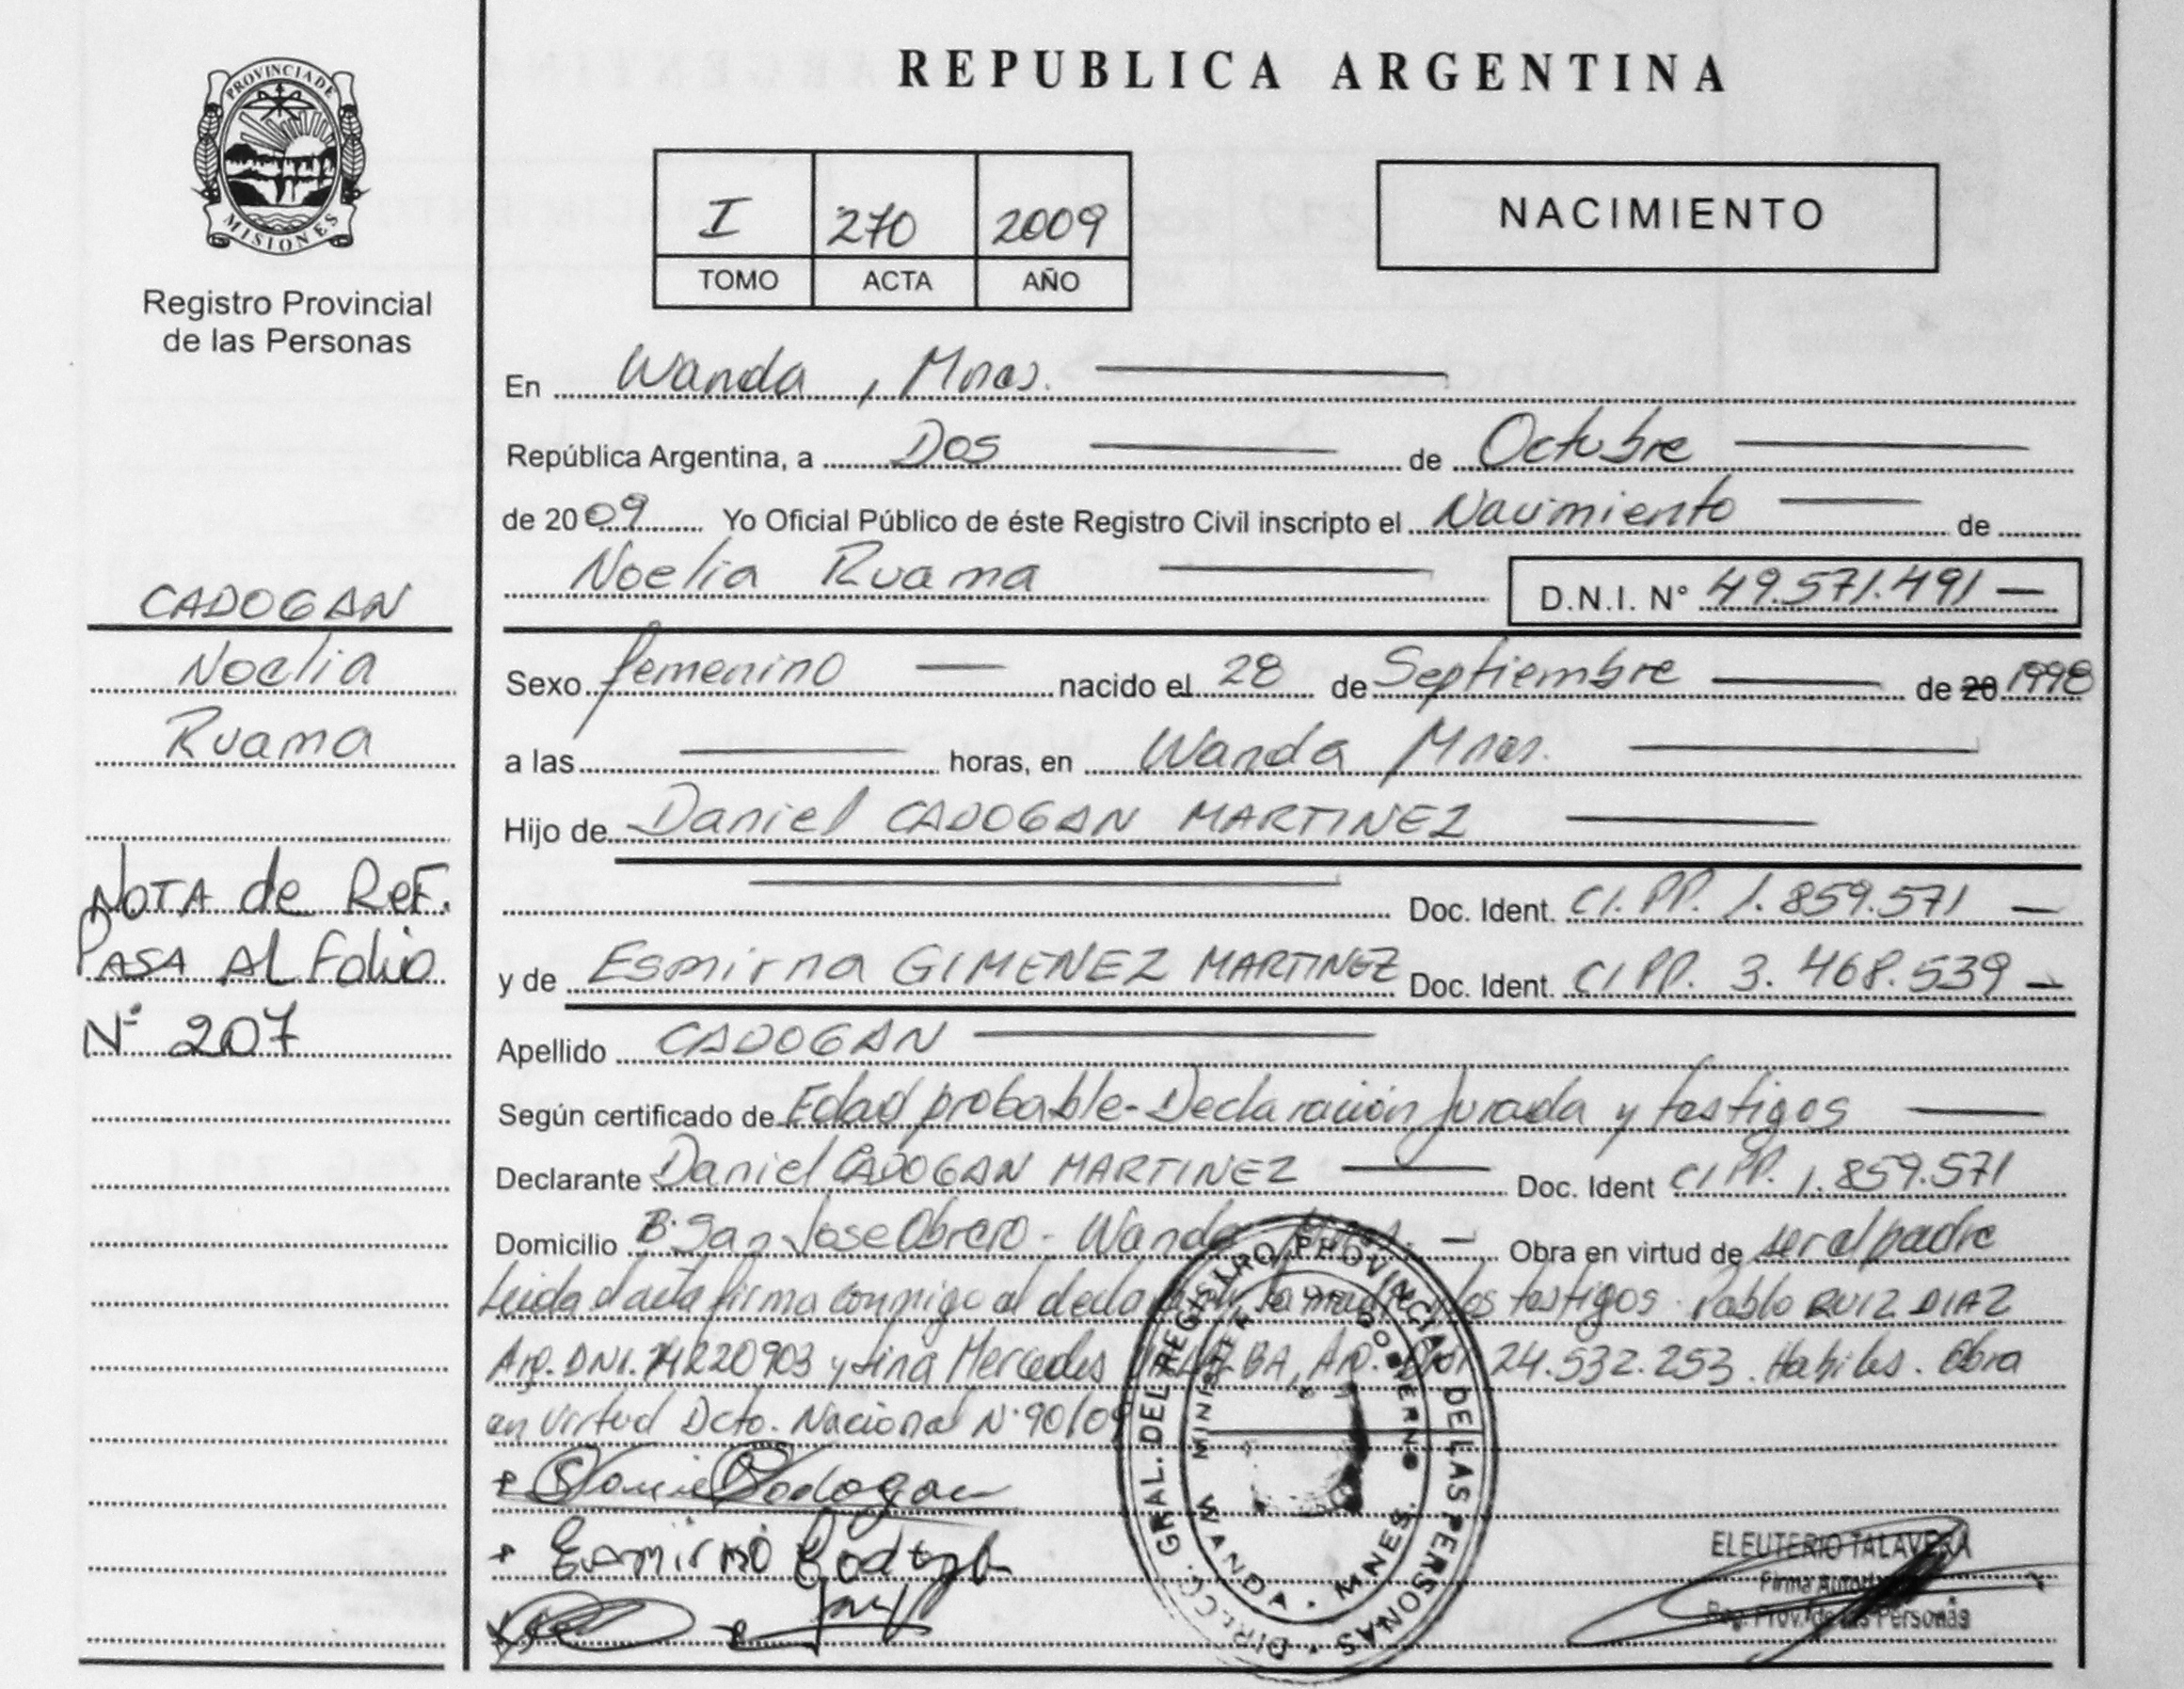 PROVINCIA DE
MISIONES
Registro Provincial
de las Personas
CADOGAN
Noelia
Ruama
NOTA de REF.
PASA AL Folio
N° 207
REPUBLICA ARGENTINA
I 270 2009
TOMO ACTA AÑO
NACIMIENTO
En Wanda, Mnes.
República Argentina, a Dos de Octubre
de 2009 Yo Oficial Público de éste Registro Civil inscripto el Nacimiento de
Noelia Ruama D.N.I. N° 49.571.491
Sexo femenino nacido el 28 de Septiembre de 20 1998
a las horas, en Wanda Mnes.
Hijo de Daniel CADOGAN MARTINEZ
Doc. Ident. CI. PP. 1.859.571
y de Esmirna GIMENEZ MARTINEZ Doc. Ident. CI PP. 3.468.539
Apellido CADOGAN
Según certificado de Edad probable-Declaración Jurada y testigos
Declarante Daniel CADOGAN MARTINEZ Doc. Ident CI PP. 1.859.571
Domicilio B. San Jose Obrero - Wanda Mnes. Obra en virtud de ser el padre
Leida el acta firma conmigo el la madre y los testigos Pablo RUIZ DIAZ
Arg. DNI. 14220903 y Mercedes Arg. DNI 24.532.253. Habiles. Obra
en virtud Dcto. Nacional N° 90/09
Esmirna
DIR. GRAL. DEL REGISTRO PROVINCIAL DE LAS PERSONAS
MINISTERIO DE GOBIERNO
WANDA. MNES.
ELEUTERIO TALAVERA
Firma
Reg. Prov. de las Personas